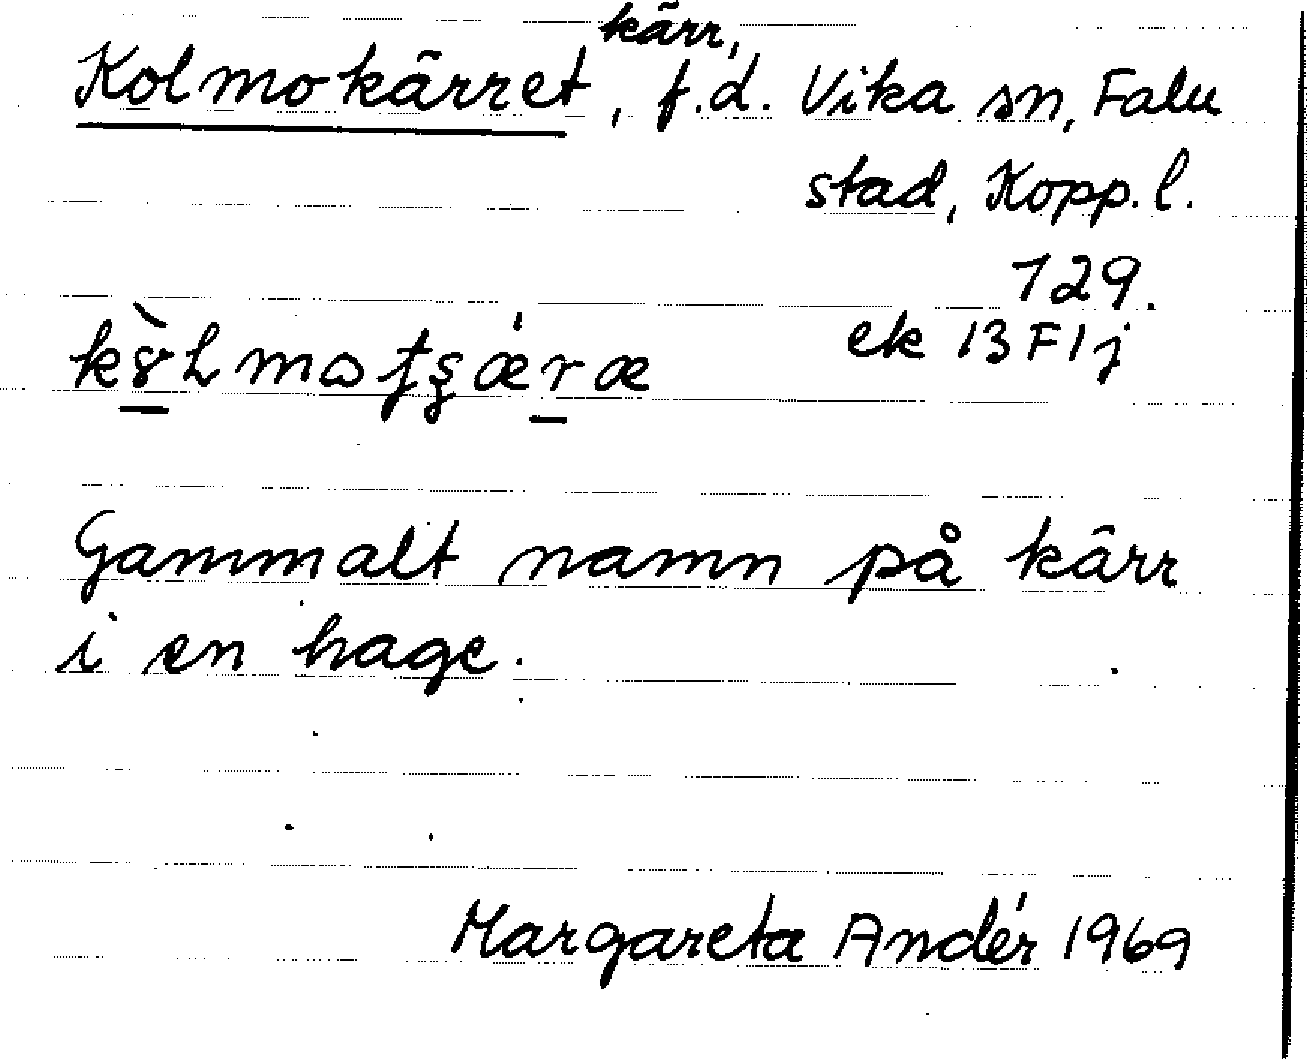 kärr,
Kolmokärret, f.d. Vika sn, Falu
stad, Kopp. l.
129.
ek 13 F1j
Gammalt namn på kärr
i en hage.
Margareta Andér 1969